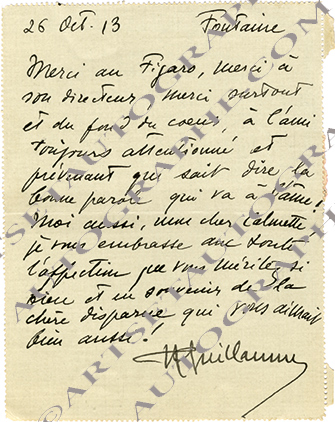 26 Oct. 13 Fontaine
Merci au Figaro, merci à
son directeur, merci surtout
et du fond du coeur, à l'ami
toujours attentionné et
prévenant qui sait dire la
bonne parole qui va à l'âme!
Moi aussi, mon cher Calmette
je vous embrasse avec toute
l'affection que vous méritez si
bien et en souvenir de la
chère disparue qui vous aimait
bien aussi!
Guillaume
©ARTSETAUTOGRAPHE.COM